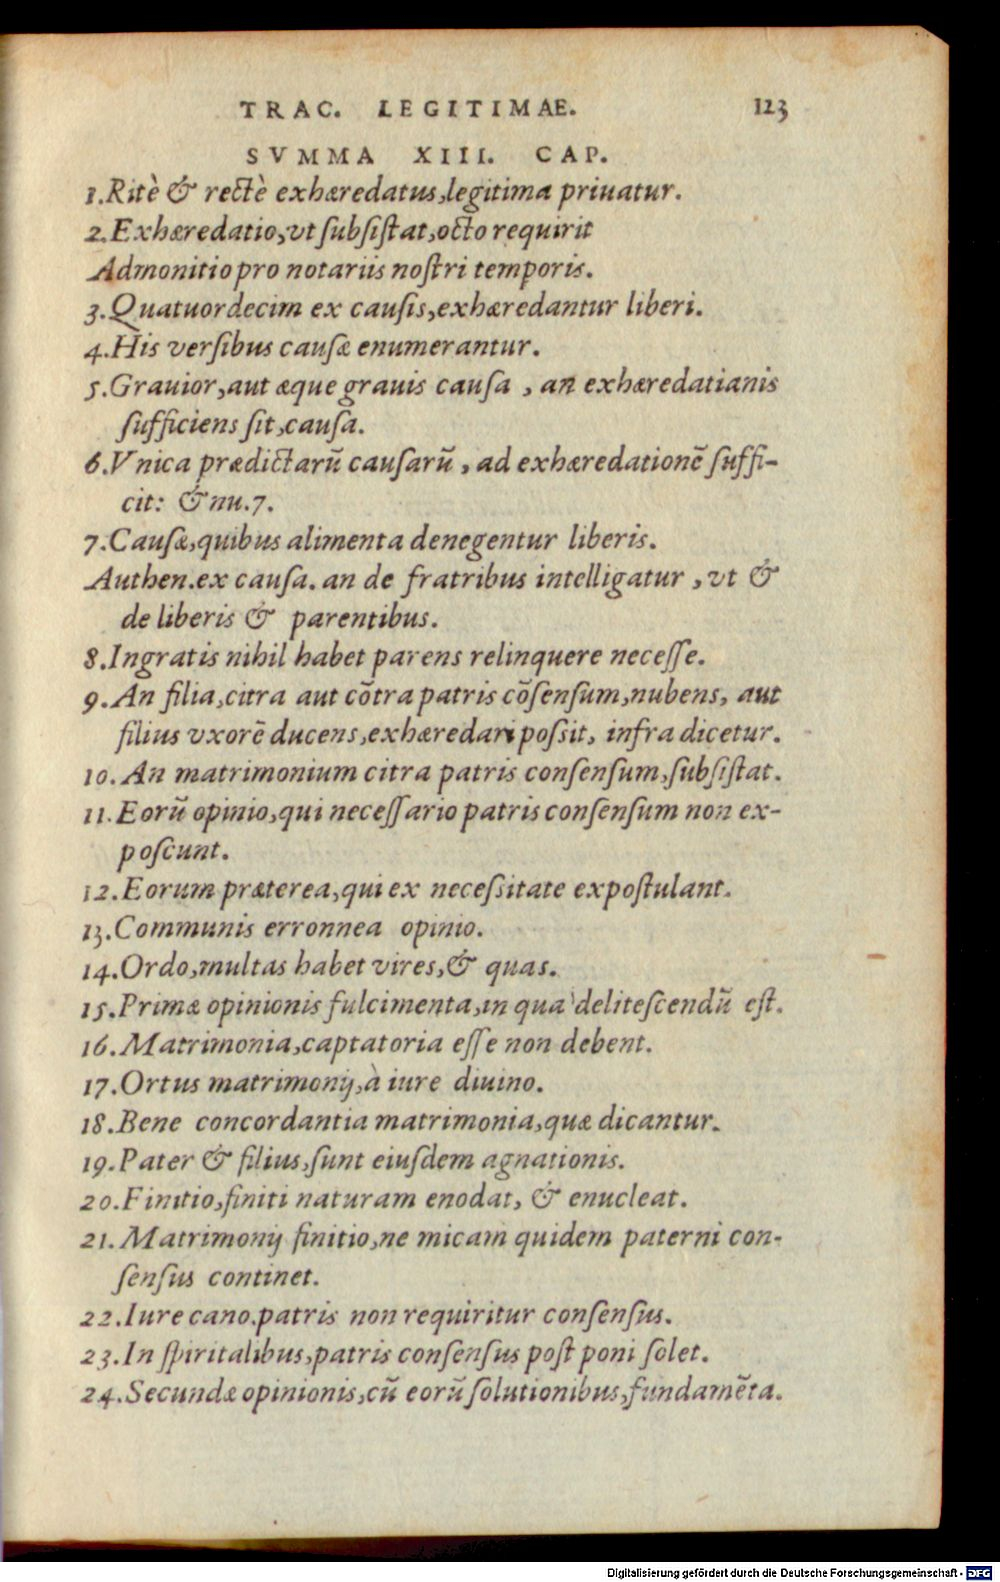 TRAC. LEGITIMAE. 123
SVMMA XIII. CAP.
1.Ritè & rectè exhæredatus,legitima priuatur.
2.Exhæredatio,vt subsistat,octo requirit
Admonitio pro notariis nostri temporis.
3.Quatuordecim ex causis,exhæredantur liberi.
4.His versibus causæ enumerantur.
5.Grauior,aut æque grauis causa , an exhæredatianis
sufficiens sit,causa.
6.Vnica prædictarũ causarũ , ad exhæredationẽ suffi-
cit: & nu.7.
7.Causæ,quibus alimenta denegentur liberis.
Authen.ex causa. an de fratribus intelligatur , vt &
de liberis & parentibus.
8.Ingratis nihil habet parens relinquere necesse.
9.An filia,citra aut cõtra patris cõsensum,nubens, aut
filius vxorẽ ducens,exhæredari possit, infra dicetur.
10. An matrimonium citra patris consensum,subsistat.
11. Eorũ opinio,qui necessario patris consensum non ex-
poscunt.
12.Eorum præterea,qui ex necessitate expostulant.
13.Communis erronnea opinio.
14.Ordo,multas habet vires,& quas.
15.Primæ opinionis fulcimenta,in qua delitescendũ est.
16.Matrimonia,captatoria esse non debent.
17.Ortus matrimonij,à iure diuino.
18.Bene concordantia matrimonia,quæ dicantur.
19.Pater & filius,sunt eiusdem agnationis.
20.Finitio,finiti naturam enodat, & enucleat.
21.Matrimonij finitio,ne micam quidem paterni con-
sensus continet.
22.Iure cano.patris non requiritur consensus.
23.In spiritalibus,patris consensus post poni solet.
24.Secundæ opinionis,cũ eorũ solutionibus,fundamẽta.
Digitalisierung gefördert durch die Deutsche Forschungsgemeinschaft - DFG